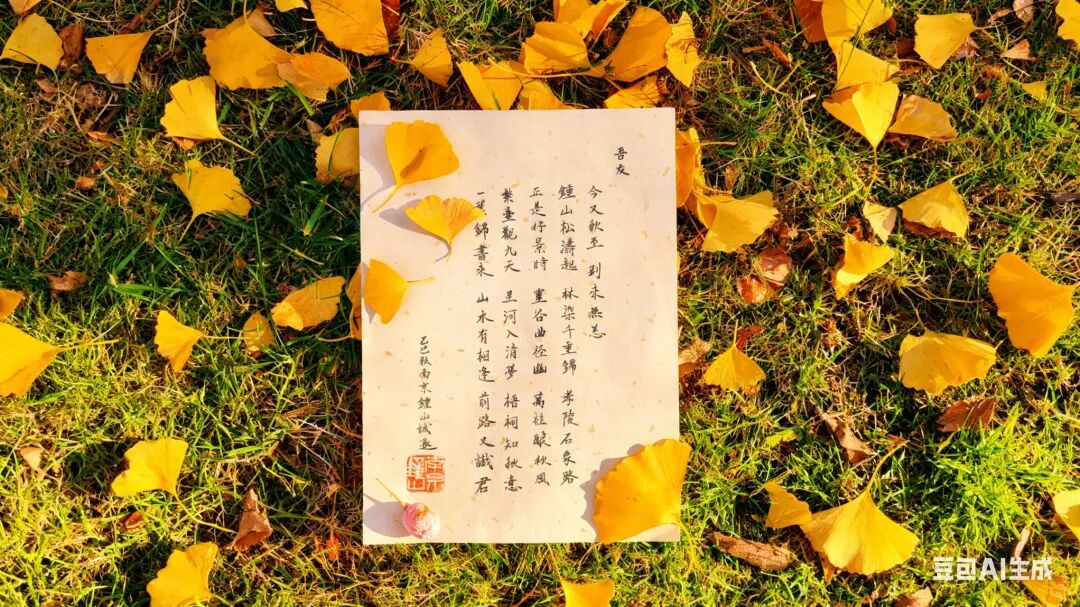 吾友
今又秋至 别來無恙
鍾山松濤起 林染千重錦 孝陵石象路
正是好景時 靈谷曲徑幽 萬桂釀秋風
紫臺觀九天 星河入清夢 梧桐知秋意
一葉錦書來 山水有相逢 前路又識君
乙巳秋南京鍾山誠邀
豆包AI生成